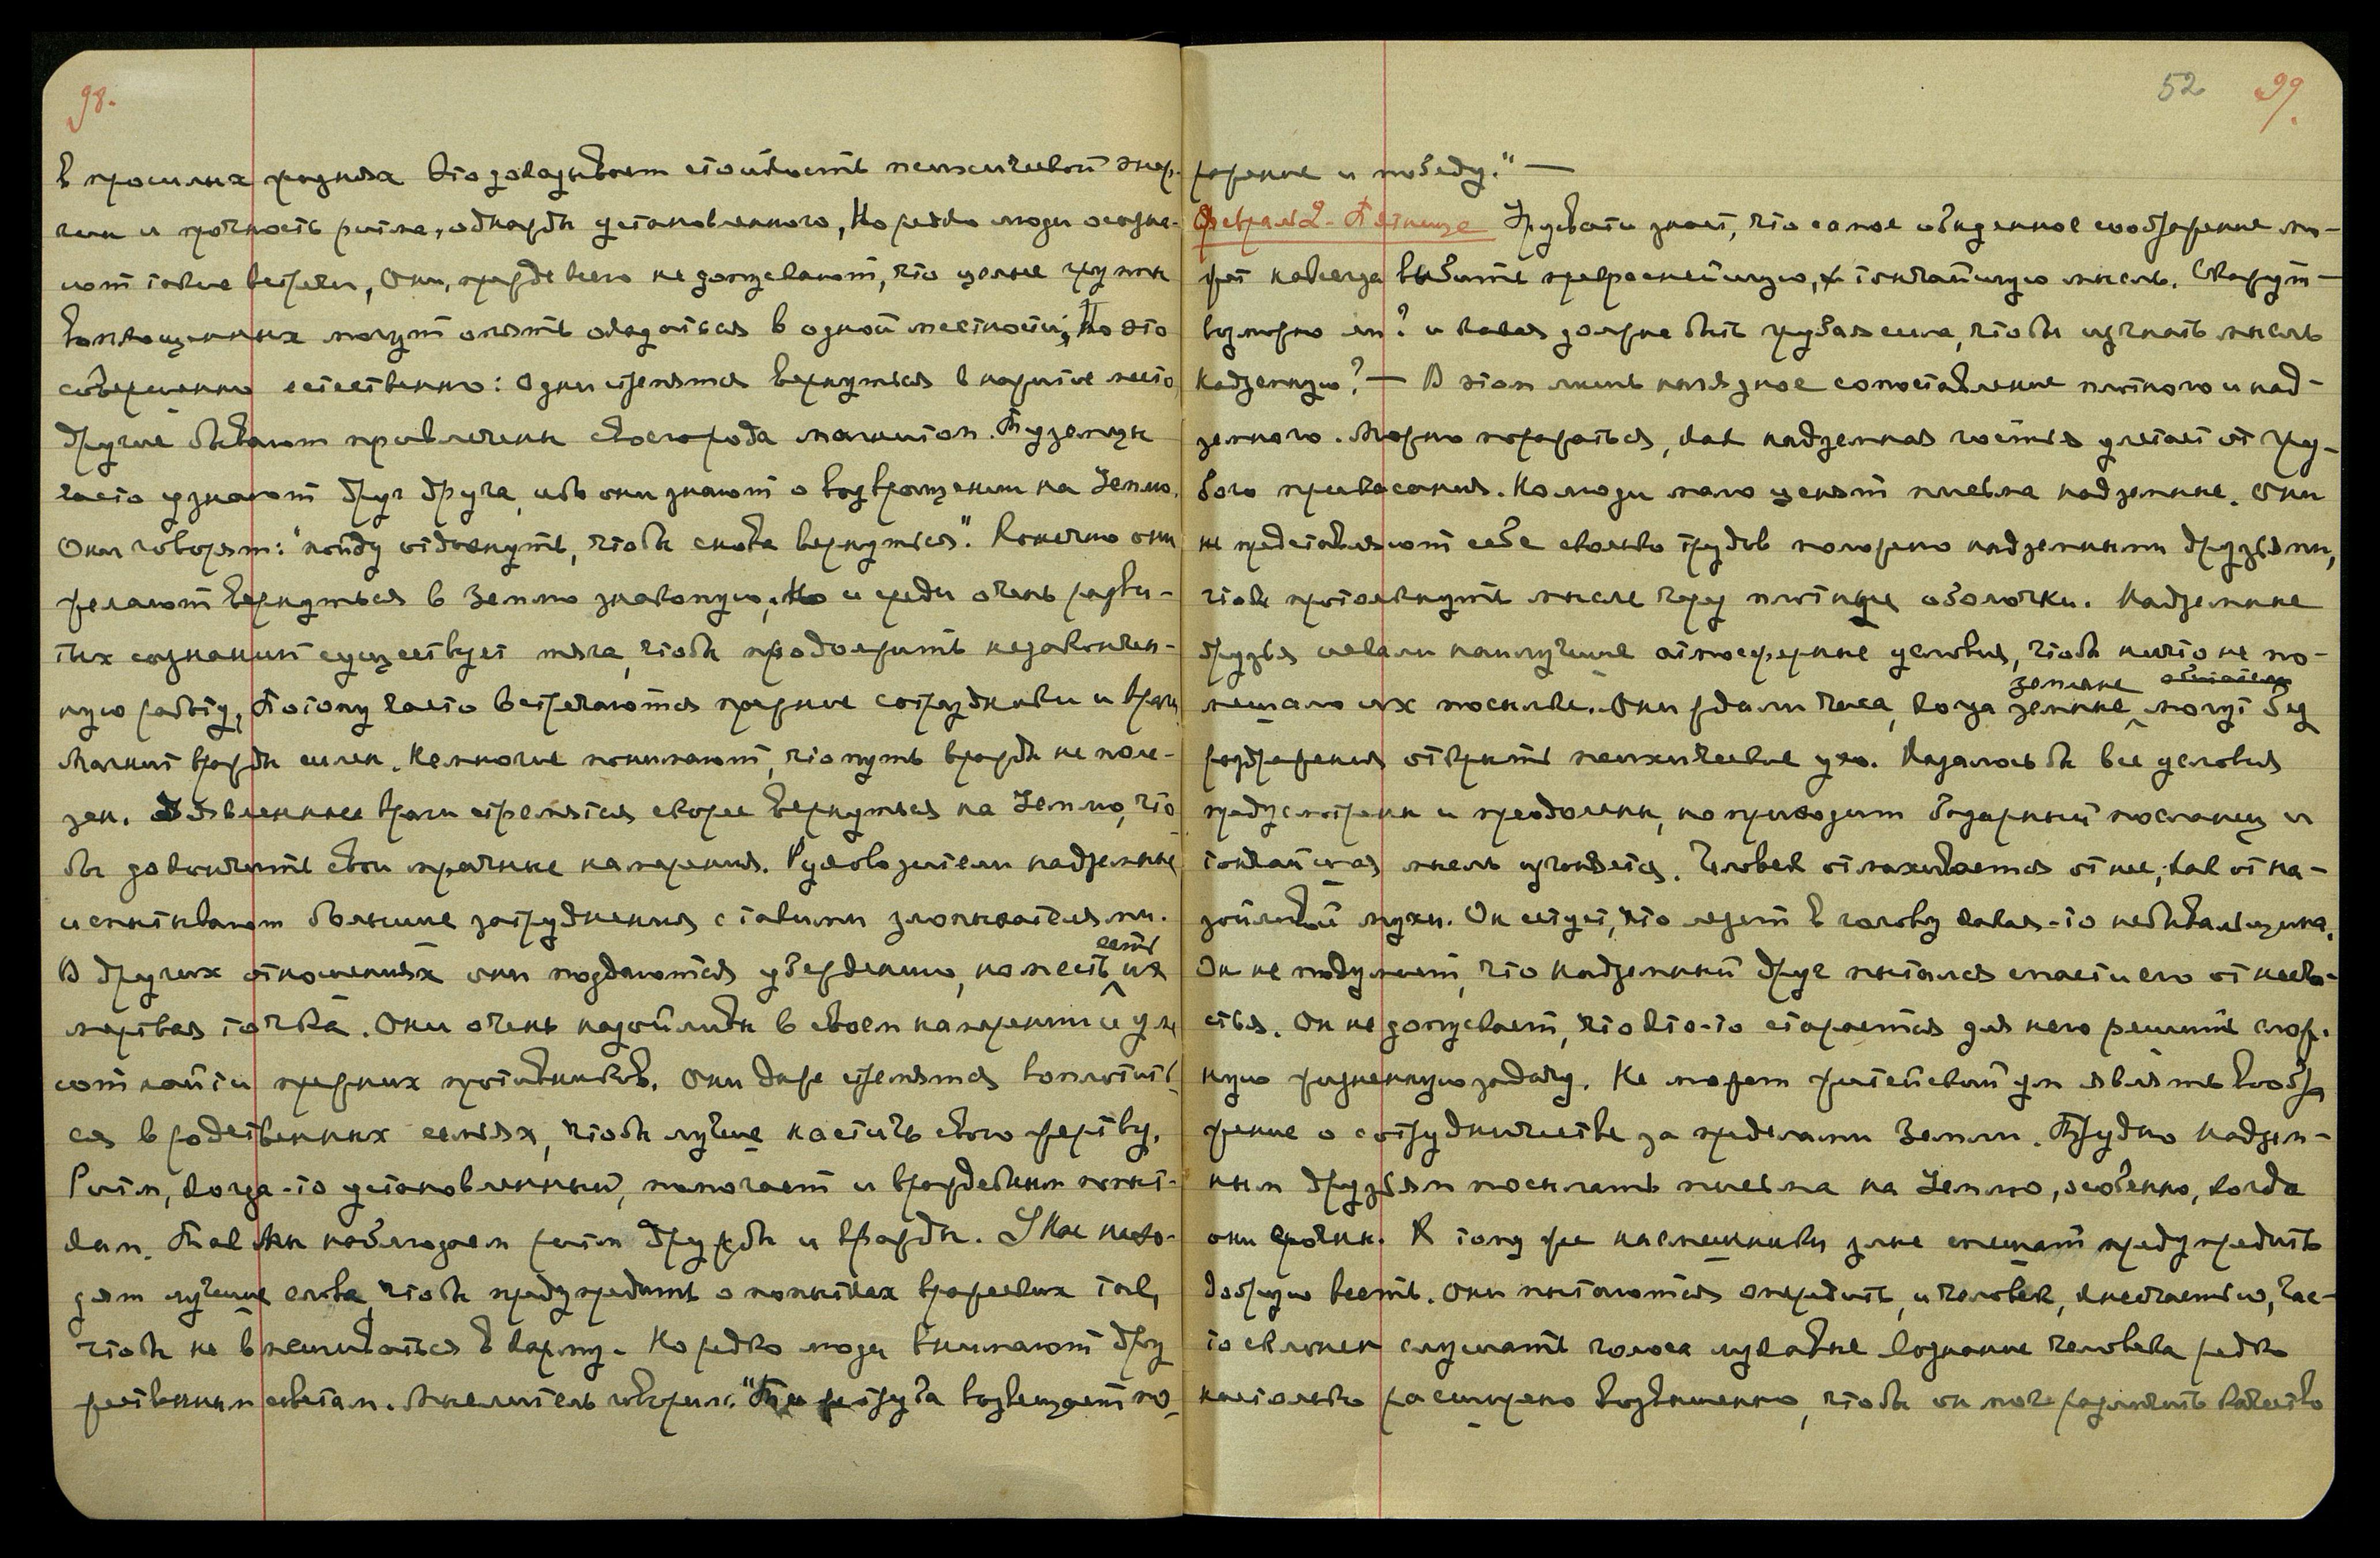 98.
в прошлых жизнях. Это доказывает стойкость психической энер-
гии и прочность ритма, однажды установленного. Но редко люди осозна-
ют такие встречи, Они, прежде всего не допускают, что целые группы
воплощенных могут опять оказаться в одной местности; Но это
совершенно естественно: Одни стремятся вернуться в нажитое место,
другие бывают привлечены своего рода магнитом. Туземцы
часто узнают друг друга, ибо они знают о возвращении на Землю.
Они говорят: "пойду отдохнуть, чтобы снова вернуться". Конечно они
желают вернуться в Землю знакомую. Но и среди очень разви-
тых сознаний существует тяга, чтобы продолжить незакончен-
ную работу, Потому часто встречаются прежние сотрудники и враги
Магнит вражды силен. Немногие понимают, что путь вражды не поле-
зен. Озлобленные враги стремятся скорее вернуться на Землю, что
бы докончить свои мрачные намерения. Руководители надземные
испытывают большие затруднения с такими злопыхателями.
В других отношениях они поддаются убеждению, но месть есть их
мертвая точка. Они очень назойливы в своем намерении и уме
ют найти прежних противников. Они даже стремятся воплотить
ся в родственных семьях, чтобы лучше настичь свою жертву.
Ритм, когда-то установленный, помогает и враждебным попыт-
кам. Так Мы наблюдаем ритм дружбы и вражды. У Нас нахо-
дят лучшие слова, чтобы предупредить о попытках вражеских так,
чтобы не вмешиваться в карму. Но редко люди внимают дру
жественным советам. Мыслитель говорил: "Труба возвещает по-
52 99.
ражение и победу." —
Февраль 2 - Пятница Урусвати знает, что самое обыденное соображение мо-
жет навсегда выбить прекраснейшую, тончайшую мысль. Скажут —
возможно ли? и какая должна быть грубая сила, чтобы изгнать мысль
Надземную? — В этом лишь наглядное сопоставление плотного и над-
земного. Можно поражаться, как надземная гостья улетает от гру-
бого прикасания. Но люди мало ценят письма надземные. Они
не представляют себе сколько трудов положено надземными друзьями,
чтобы протолкнуть мысль через плотные оболочки. Надземные
друзья искали наилучшие атмосферные условия, чтобы ничто не по-
земные обитатели
мешало их посылке. Они ждали часа, когда земные могут без
раздражения открыть психическое ухо. Казалось бы все условия
предусмотрены и преодолены, но приходит базарный посланец и
тончайшая мысль изгоняется. Человек отмахивается от нее, как от на-
зойливой мухи. Он сетует, что лезет в голову какая-то небывальщина.
Он не подумает, что Надземный друг пытался спасти его от несча-
стья. Он не допускает, что кто-то старается для него решить слож-
ную жизненную задачу. Не может житейский ум явить вообра
жение о сотрудничестве за пределами Земли. Трудно надзем-
ным друзьям посылать письма на Землю, особенно, когда
они срочны. К тому же насмешники злые спешат предупредить
добрую весть. Они пытаются опередить, и человек, к несчастью, час-
то склонен слушать голоса лукавые Сознание человека редко
настолько расширено возвышенно, чтобы он мог различить качество